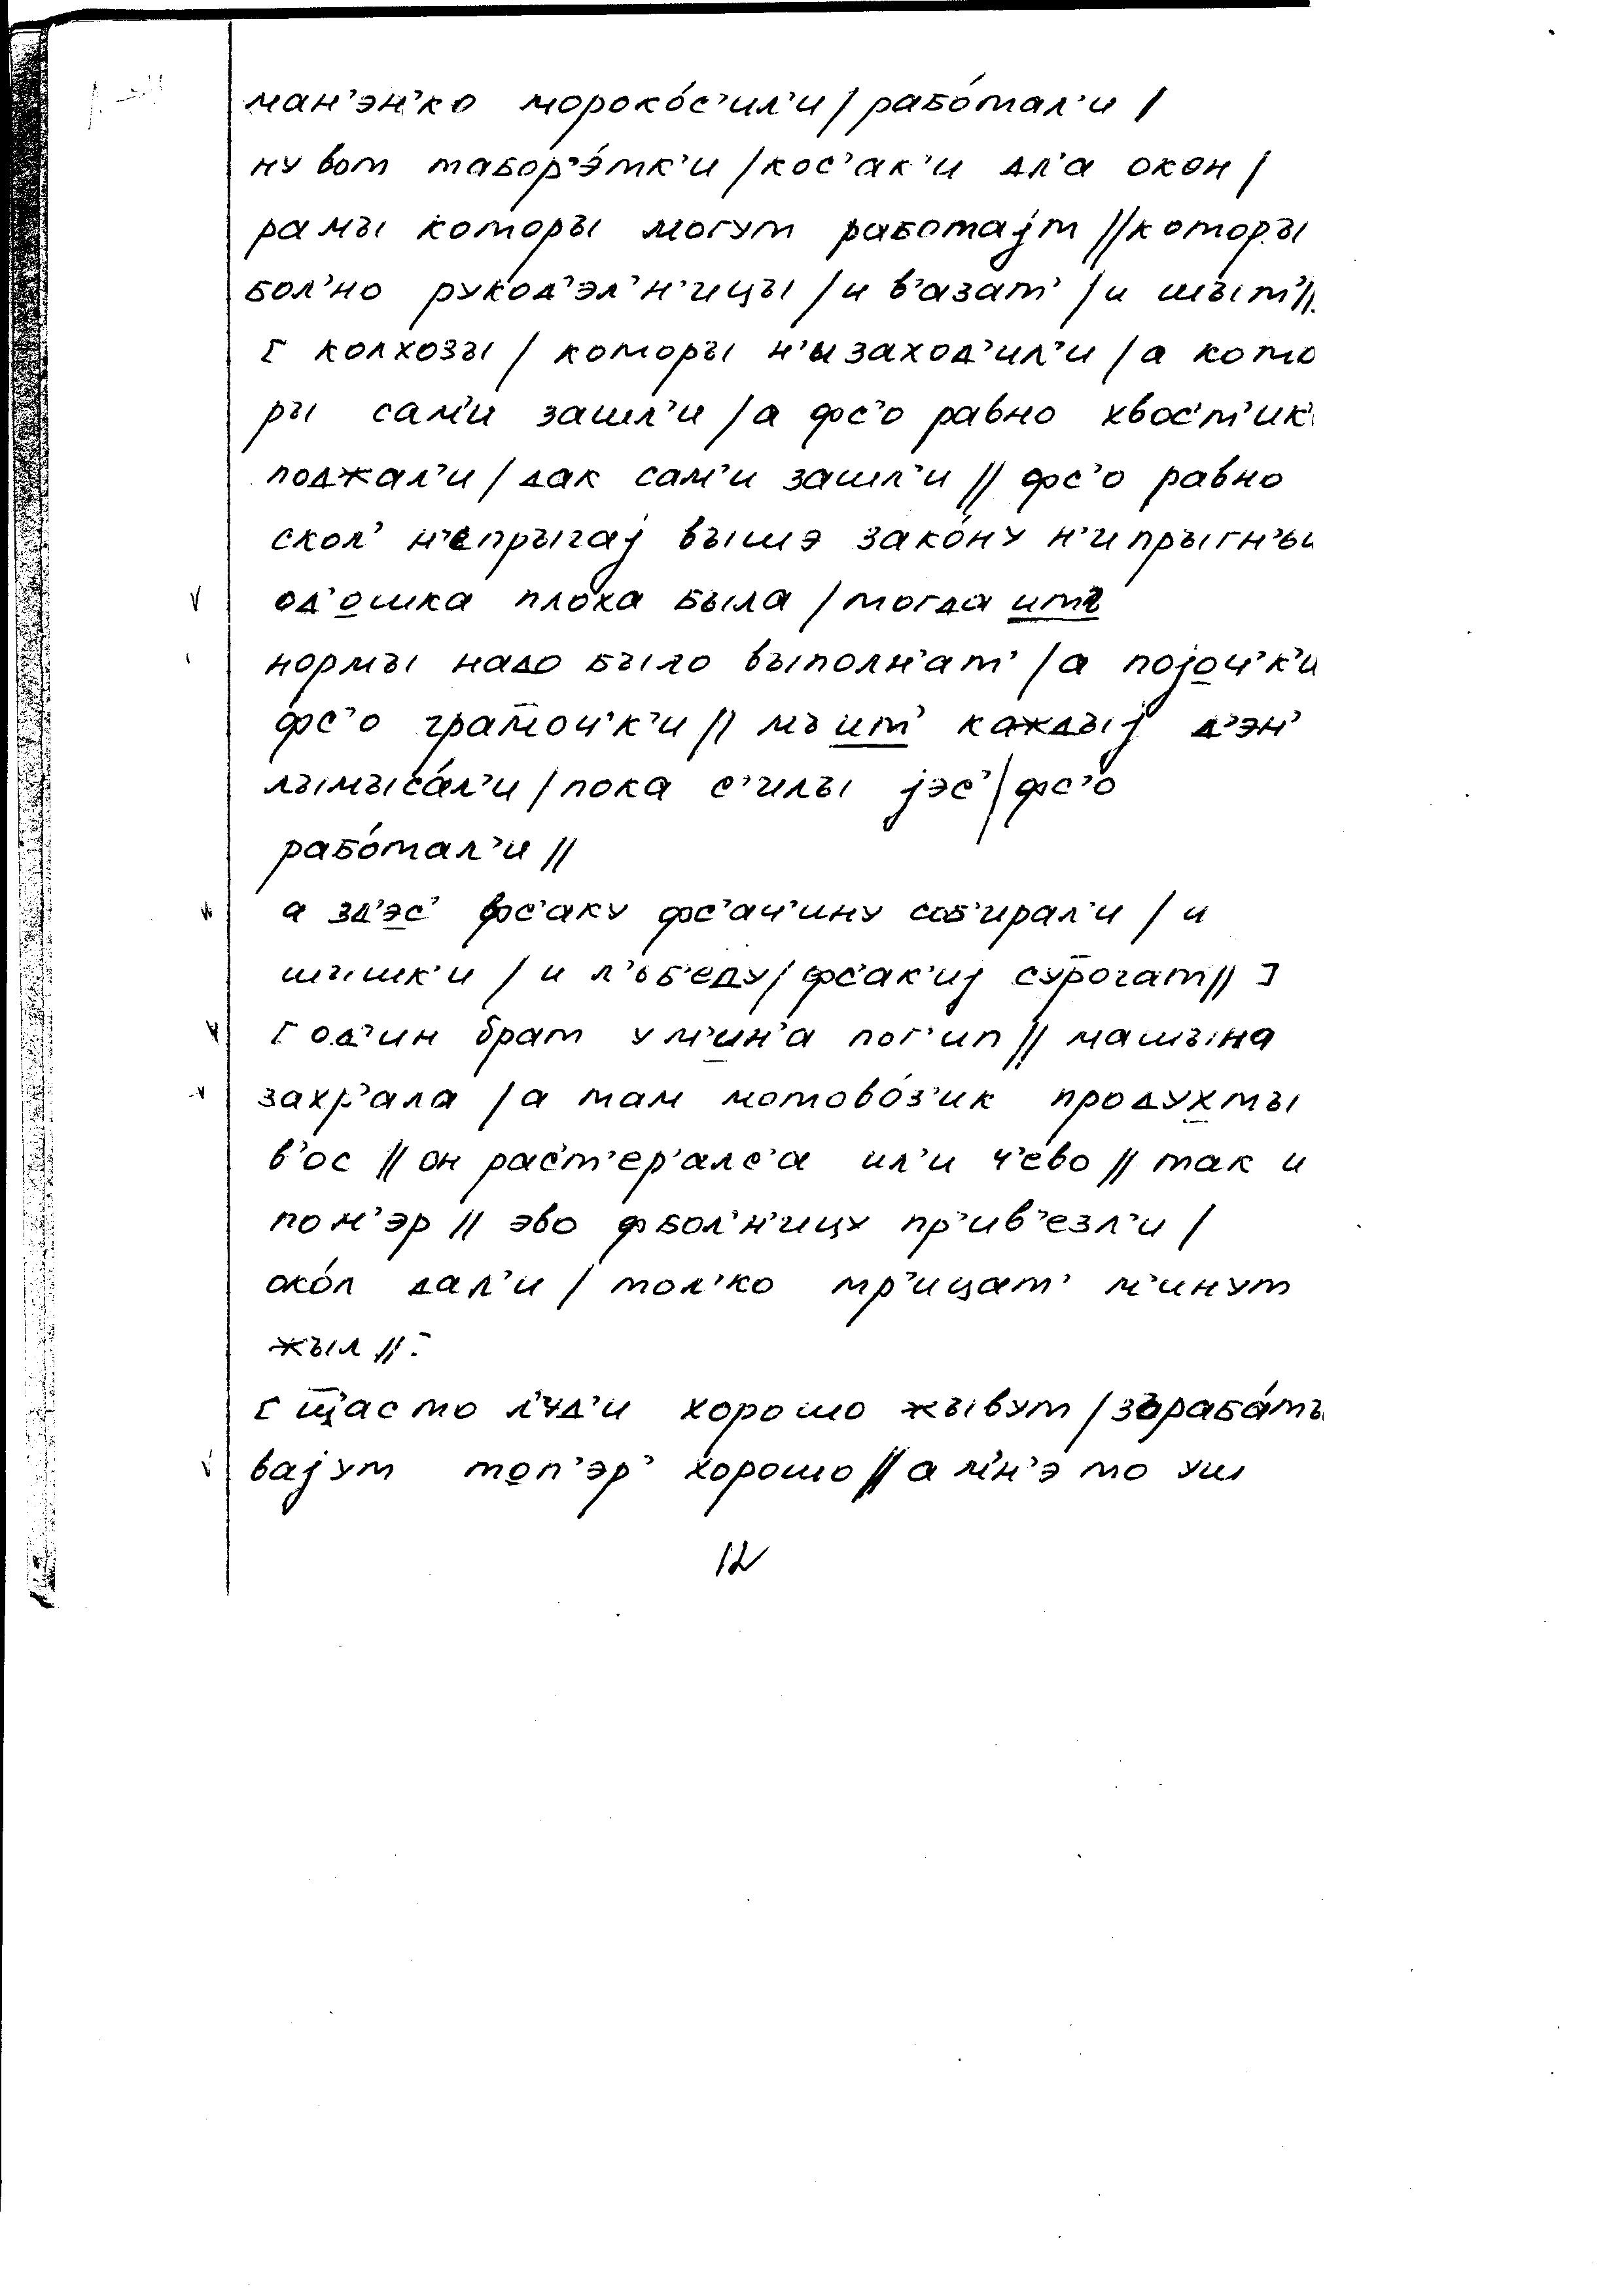 ман’эн’ко мороко́с’ил’и / рабо́тал’и /
ну вот табор’э́тк’и / кос’ак’и дл’а окон /
рамы которы могут работаjт // которы
бол’но рукод’эл’н’ицы / и в’азат’ / и шыт’ //
[ колхозы / которы н’ызаход’ил’и / а кото
ры сам’и зашл’и / а фс’о равно хвос’т’ик’
поджал’и / дак сам’и зашл’и // фс’о равно
скол’ н’епрыгаj вышэ зако́ну н’ипрыгн’ьш
од’ошка плоха была / тогда
нормы надо было выполн’ат’ / а поjоч’к’и
фс’о грамоч’к’и // мы ит’ каждыj д’эн’
лымыса́л’и / пока с’илы jэс’ / фс’о
рабо́тал’и //
а зд’эс’ фс’аку фс’ач’ину соб’ирал’и / и
шышк’и / и л’ьб’еду / фс’ак’иj сурогат // ]
[ од’ин брат у м’ин’а пог’ип // машына
захр’ала / а там мотово́з’ик продухты
в’ос // он рас’т’ер’алс’а ил’и ч’ево // так и
пом’эр // эво фбол’н’ицу пр’ив’езл’и /
око́л дал’и / тол’ко тр’ицат’ м’инут
жыл // ]
[ щ’ас то л’уд’и хорошо жывут / зараба́ты
ваjут топ’эр’ хорошо // а м’н’э то уш
12